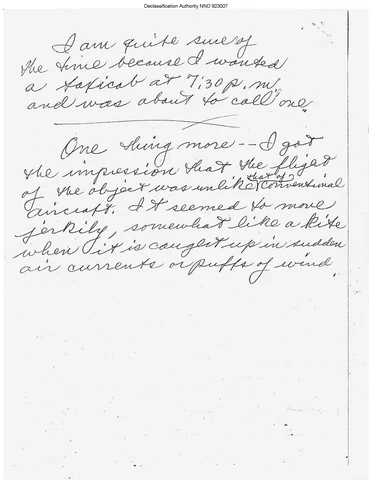 Declassification Authority NND 923007
I am quite sure of
the time because I wanted
a taxicab at 7:30 p.m.
and was about to call one.
One thing more -- I got
the impression that the flight
of the object was unlike that of conventional
aircraft. It seemed to move
jerkily, somewhat like a kite
when it is caught up in sudden
air currents or puffs of wind.